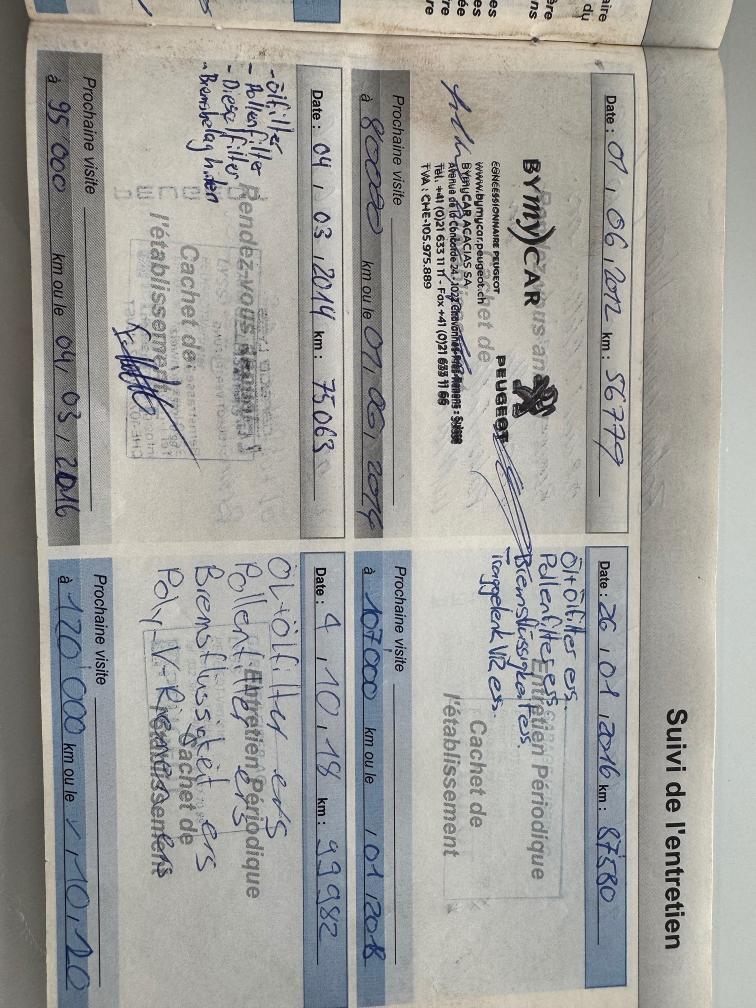 Suivi de l'entretien
Date : 01, 06, 2012 km : 56779
BYmyCAR
PEUGEOT
CONCESSIONNAIRE PEUGEOT
www.bymycar.peugeot.ch
BYmyCAR ACACIAS SA
Avenue de la Concorde 24 - 1022
Tél. +41 (0)21 633 11 11 - Fax +41 (0)21 633 11 66
TVA : CHE-105.975.889
Prochaine visite
à 80000 km ou le 01, 06, 2014
Date : 26, 01, 2016 km : 87580
Öl+Ölfilter ers.
Pollenfilter ers
Bremsflüssigkeit ers
Traggelenk V/R ers.
Entretien Périodique
Cachet de
l'établissement
Prochaine visite
à 107000 km ou le 1 01 2018
Date : 04, 03, 2014 km : 75063
- Ölfilter
- Pollenfilter
- Diesel filter
- Bremsbelag hinten
Rendez-vous
Cachet de
l'établissement
Prochaine visite
à 95 000 km ou le 04, 03, 2016
Date : 4, 10, 18 km : 99982
Öl+Ölfilter ers
Pollenfilter ers
Bremsflüssigkeit ers
Poly-V-Riemen ers
Entretien Périodique
Cachet de
l'établissement
Prochaine visite
à 120 000 km ou le 10, 20